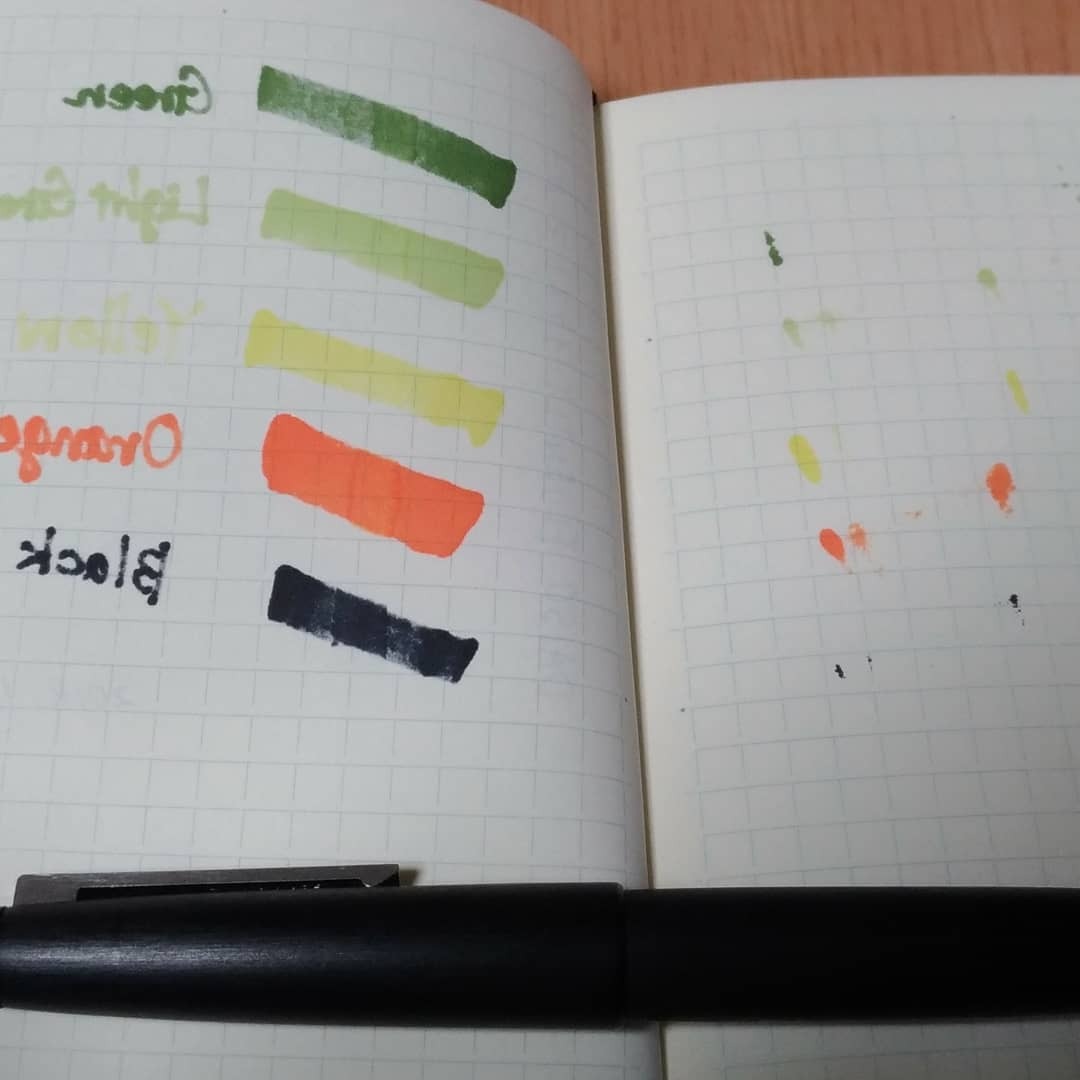 Green
Light Gre
Yellow
Orange
Black